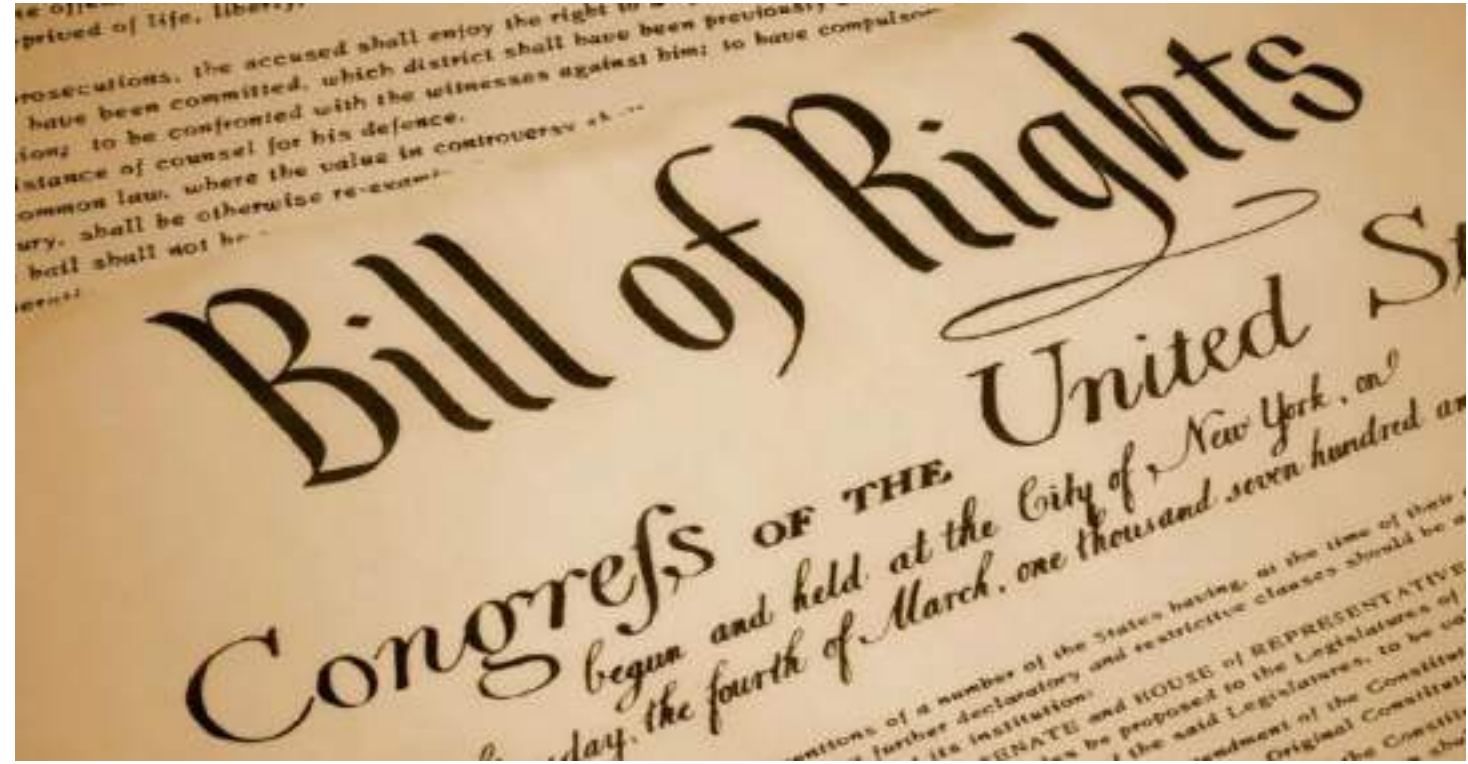 prived of life, liberty,
rosecutions, the accused shall enjoy the right to a
have been committed, which district shall have been previously
ion; to be confronted with the witnesses against him; to have compulsor
istance of counsel for his defence.
ommon law, where the value in controversy
ury, shall be otherwise re-exami
bail shall not be
Bill of Rights
Congreſs OF THE United St
begun and held at the City of New York, on
day, the fourth of March, one thousand seven hundred an
entions of a number of the States having, at the time of their
further declaratory and restrictive clauses should be a
its institution:
ENATE and HOUSE of REPRESENTATIVE
be proposed to the Legislatures of
the said Legislatures, to be va
endment of the Constitut
Original Constituti
the Constit